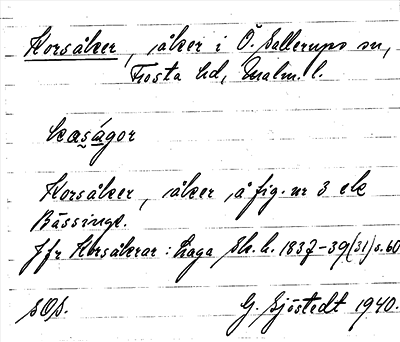 Korsåker, åker i Ö. Sallerups sn,
Frosta hd, Malm. l.
kasågor
Korsåker, åker, å fig. nr 3 ek
Bässingt.
Jfr Korsåkrar: Laga Sk. h. 1837-39 (31) s. 60
SOS. G. Sjöstedt 1940.